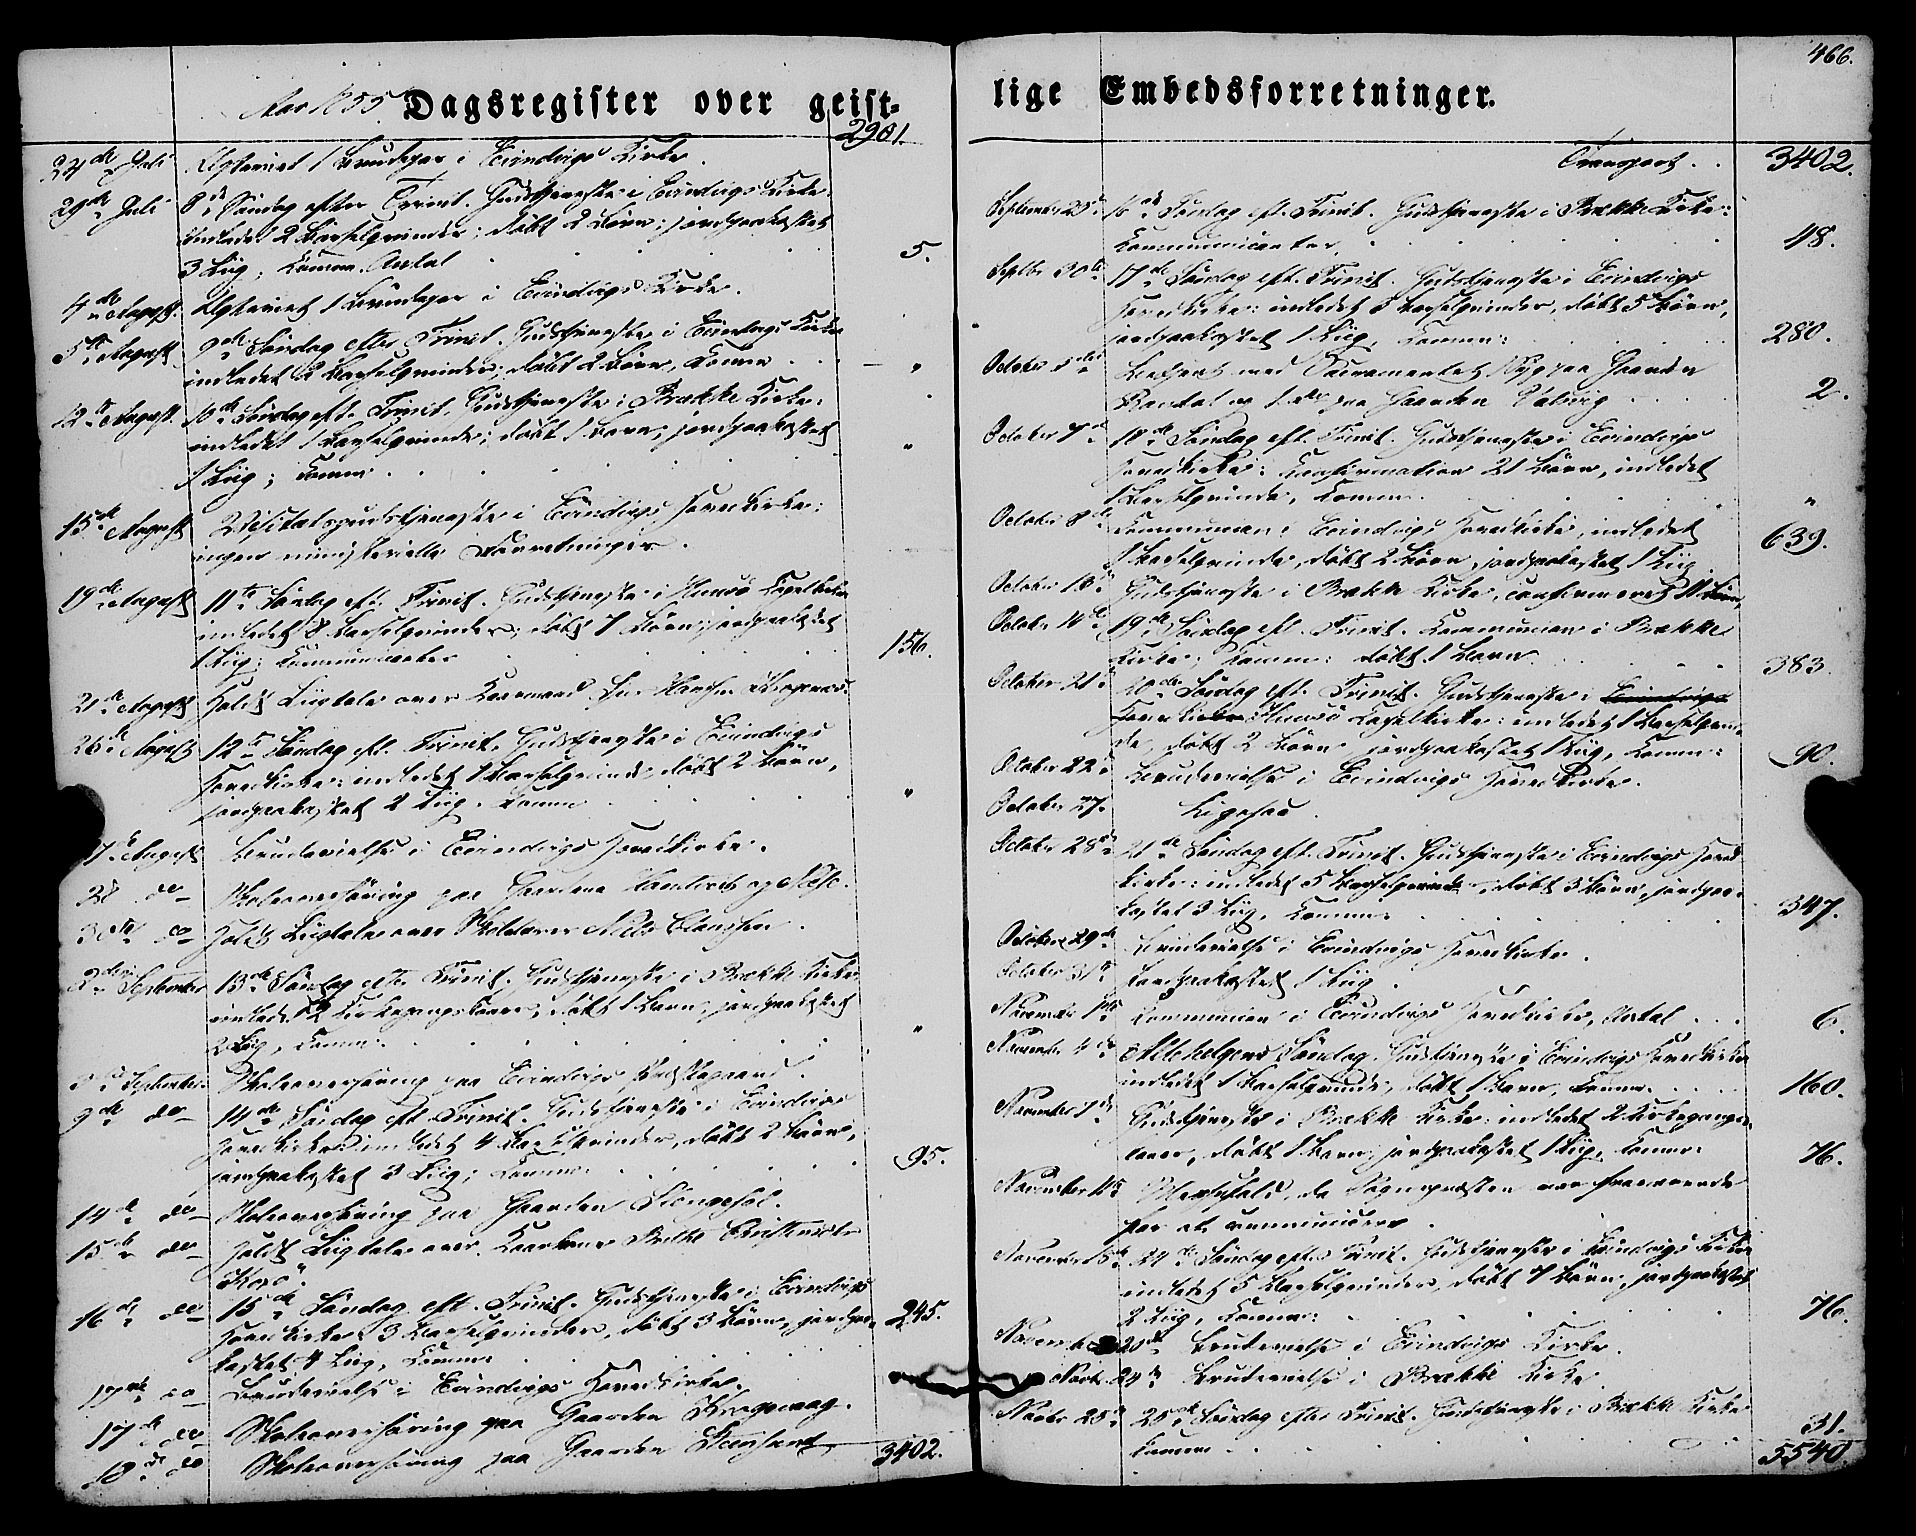 466.
Aar 1855 Dagsregister over geist-
lige Embedsforretninger.
2901.
24de Juli Egteviet 1 Brudepar i Evindvigs Kirke.
29de Juli 8de Söndag efter Trinit. Gudstjeneste i Evindvigs Kirke:
indledet 2 Barselqvinder; döbt 2 Börn; jordpaakastet
3 Liig; Comm. Antal 5.
4de August. Egteviet 1 Brudepar i Evindvigs Kirke.
5te August 9de Söndag efter Trinit. Gudstjeneste i Evindvigs Kirke
indledet 2 Barselqvinder; döbt 2 Börn, Comm. "
12te August. 10de Söndag eft. Trinit. Gudstjeneste i Brække Kirke:
indledet 1 Barselqvinde; döbt 1 Barn, jordpaakastet
1 Liig; Comm. "
15de August Visitatsgudstjeneste i Evindvigs Hovedkirke:
ingen ministerielle Forretninger.
19de August 11te Söndag eft. Trinit. Gudstjeneste i Husö Capelkirke
indledet 8 Barselqvinder; döbt 7 Börn; jordpaakastet
1 Liig; Communicanter 156.
21de August Holdt Liigtale over
26de August 12te Söndag eft. Trinit. Gudstjeneste i Evindvigs
Hovedkirke: indledet 1 Barselqvinde, döbt 2 Börn,
jordpaakastet 2 Liig. Comm. "
August Brudevielse i Evindvigs Hovedkirke.
28 do Skoleoverhöring paa Gaardene
30te do Holdt Liigtale over Skolelærer
2den September 13de Söndag efter Trinit. Gudstjeneste i Brække Kirke
indledt 2 Kirkegangskoner, döbt 1 Barn, jordpaakastet
2 Liig, Comm. "
5te September Skoleoverhöring paa Evindvigs Præstegaard.
9de do 14de Söndag eft. Trinit. Gudstjeneste i Evindvigs
Hovedkirke indledet 4 Barselqvinder, döbt 2 Börn,
jordpaakastet 3 Liig; Comm: 95.
14de do Skoleoverhöring paa Gaarden
15de do Holdt Liigtale over
16de do 15de Söndag eft. Trinit. Gudstjeneste i Evindvigs
Hovedkirke 3 Barselqvinder, döbt 3 Börn, jordpaa-
kastet 4 Liig, Comm: 245.
17de do Brudevielse i Evindvigs Hovedkirke.
17de do Skoleoverhöring paa Gaarden
18de do Skoleoverhöring paa Gaarden
3402.
Transport . . 3402.
September 23de 16de Söndag eft. Trinit. Gudstjeneste i Brække Kirke:
Communicanter 48.
Septbr 30te 17de Söndag eft. Trinit. Gudstjeneste i Evindvigs
Hovedkirke: indledet Barselqvinder, döbt 5 Börn,
jordpaakastet 1 Liig, Comm: 280.
October Betjent med Sacramentet 1 Syg paa Gaarden
og 1 do paa Gaarden 2.
October 7de 18de Söndag eft. Trinit. Gudstjeneste i Evindvigs
Hovedkirke: Confirmation 21 Börn, indledet
1 Barselqvinde, Comm. "
October 8de Communion i Evindvigs Hovedkirke, indledet
1 Barselqvinde, döbt 2 Börn, jordpaakastet 1 Liig 639.
October 13de Gudstjeneste i Brække Kirke, confirmeret 11 Börn,
October 14de 19de Söndag eft. Trinit. Communion i Brække
Kirke, Comm: döbt 1 Barn. 383.
October 21de 20de Söndag eft. Trinit. Gudstjeneste i Evindvigs
Hovedkirke Husö Capelkirke: indledet 1 Barselqvin-
de, döbt 2 Börn jordpaakastet 1 Liig, Comm: 90.
October 22de Brudevielse i Evindvigs Hovedkirke.
October 27. Ligesaa.
October 28de 21de Söndag eft. Trinit. Gudstjeneste i Evindvigs Hoved-
kirke: indledet 5 Barselqvinder, döbt 3 Börn, jordpaa-
kastet 3 Liig, Comm: 347.
October 29de Brudevielse i Evindvigs Hovedkirke.
October 31te Jordpaakastet 1 Liig.
November 1ste Communion i Evindvigs Hovedkirke, Antal . . . 6.
November 4de Allehelgens Söndag. Gudstjeneste i Evindvigs Hovedkirke
indledet 1 Barselqvinde, döbt 1 Barn, Comm. 160.
November Gudstjeneste i Brække Kirke: indledet 2 Kirkegangs-
koner, döbt 1 Barn, jordpaakastet 1 Liig, Comm: 76.
November Messefald, da Sognepræsten var fraværende
for at communicere.
November 24de Söndag efter Trinit. Gudstjeneste i Evindvigs Kirke
indledet 5 Barselqvinder, döbt 7 Börn, jordpaakastet
2 Liig, Comm: 76.
November 20de Brudevielse i Evindvigs Kirke.
Novbr. 24de Brudevielse i Brække Kirke.
Novbr 25de 25de Söndag efter Trinit. Gudstjeneste i Brække Kirke
Comm 31.
5540